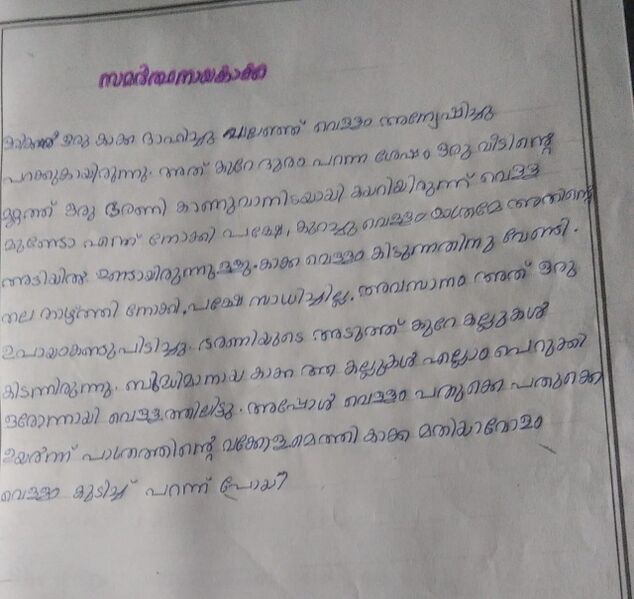 സമർത്ഥനായകാക്ക
ഒരിക്കൽ ഒരു കാക്ക ദാഹിച്ചു വലഞ്ഞ് വെള്ളം അന്വേഷിച്ചു
പറക്കുകായിരുന്നു. അത് കുറേ ദൂരം പറന്ന ശേഷം ഒരു വീടിന്റെ
മുറ്റത്ത് ഒരു ഭരണി കാണുവാനിടയായി കയറിയിരുന്ന് വെള്ള
മുണ്ടോ എന്ന് നോക്കി പക്ഷേ, കുറച്ചു വെള്ളം മാത്രമേ അതിന്റെ
അടിയിൽ ഉണ്ടായിരുന്നുള്ളു. കാക്ക വെള്ളം കിട്ടുന്നതിനു വേണ്ടി.
തല താഴ്ത്തി നോക്കി, പക്ഷേ സാധിച്ചില്ല. അവസാനം അത് ഒരു
ഉപായംകണ്ടുപിടിച്ചു. ഭരണിയുടെ അടുത്ത് കുറേ കല്ലുകൾ
കിടന്നിരുന്നു. ബുദ്ധിമാനായ കാക്ക ആ കല്ലുകൾ എല്ലാം പെറുക്കി
ഒരോന്നായി വെള്ളത്തിലിട്ടു. അപ്പോൾ വെള്ളം പതുക്കെ പതുക്കെ
ഉയർന്ന് പാത്രത്തിന്റെ വക്കോളമെത്തി കാക്ക മതിയാവോളം
വെള്ളം കുടിച്ച് പറന്ന് പോയി